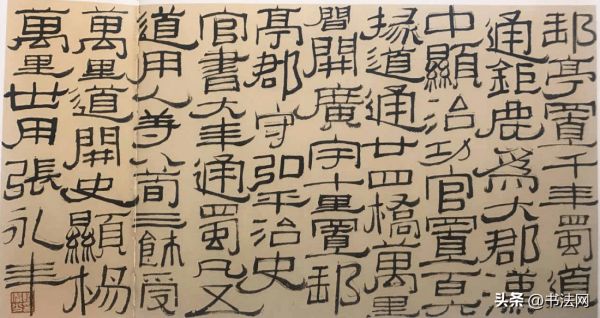 亭置千年蜀道
通鉅鹿為大郡漢
中顯治功官置百六
掾道通廿四橋萬里
開廣宇十里置
亭郡守弘平治史
官書六年通蜀凡又
道用人等八荀三餘受
萬里道開史顯楊
萬里世用張永年
头条 @书法网